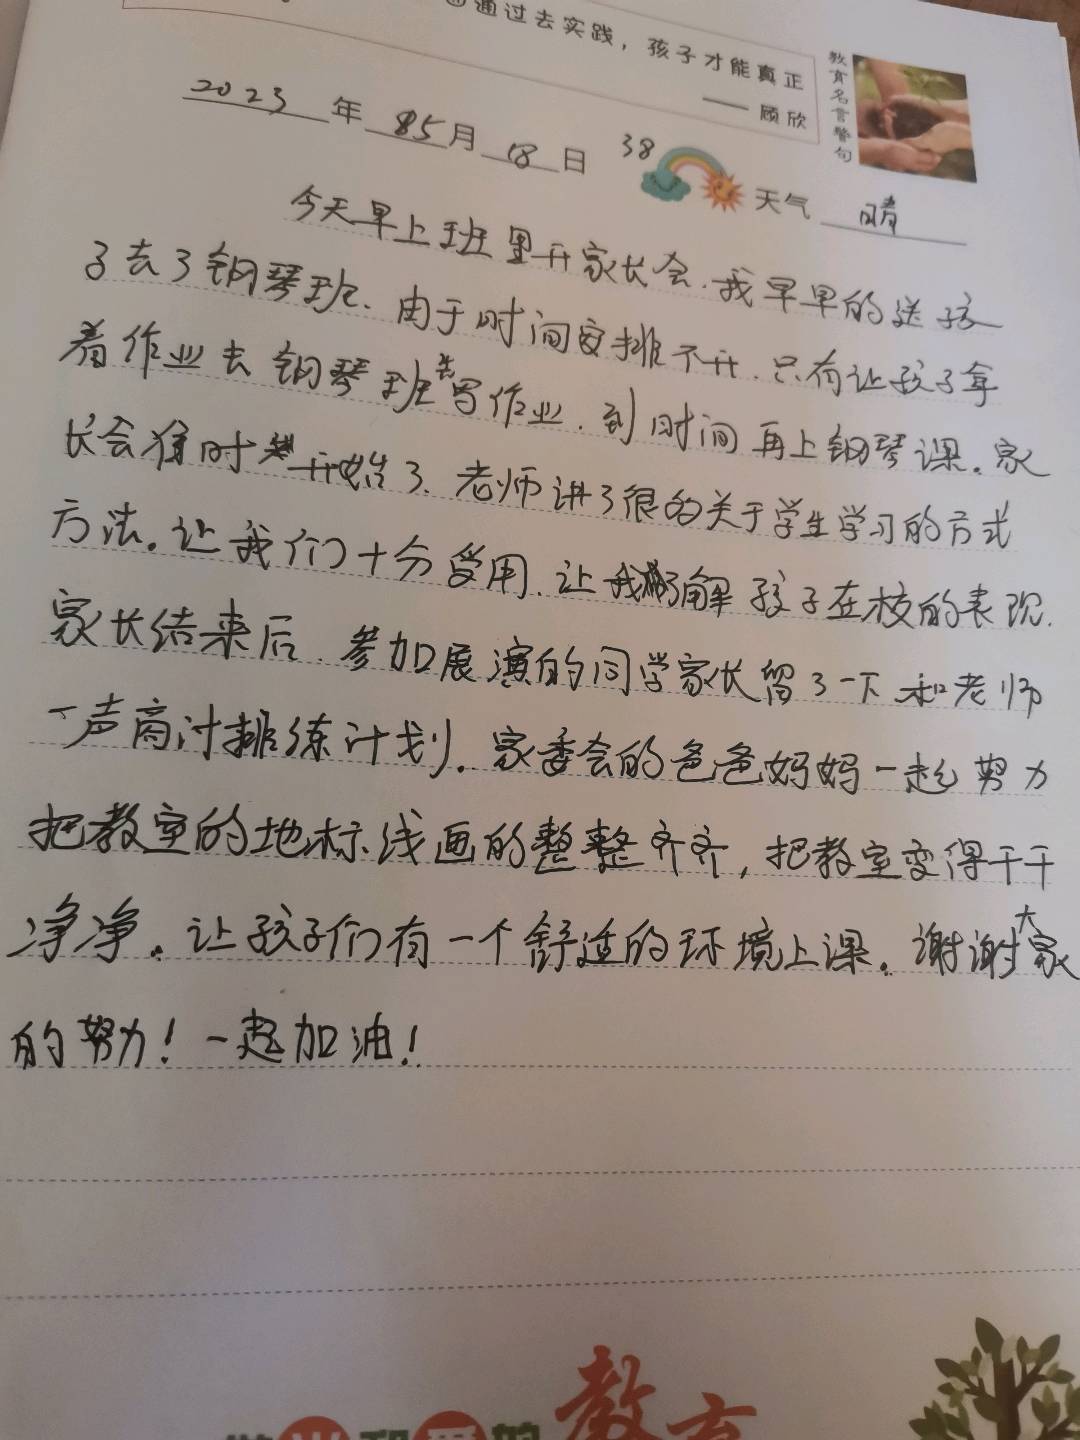 通过去实践，孩子才能真正
—— 顾欣
教育名言警句
2023年85月18日 38 天气 晴
今天早上班里开家长会.我早早的送孩
子去了钢琴班.由于时间安排不开.只有让孩子拿
着作业去钢琴班先写作业.到时间再上钢琴课。家
长会准时开始了.老师讲了很的关于学生学习的方式
方法。让我们十分受用.让我们了解孩子在校的表现.
家长结束后.参加展演的同学家长留了一下和老师
一声商讨排练计划。家委会的爸爸妈妈一起努力
把教室的地标线画的整整齐齐，把教室变得干干
净净。让孩子们有一个舒适的环境上课。谢谢大家
的努力！一起加油！
教育